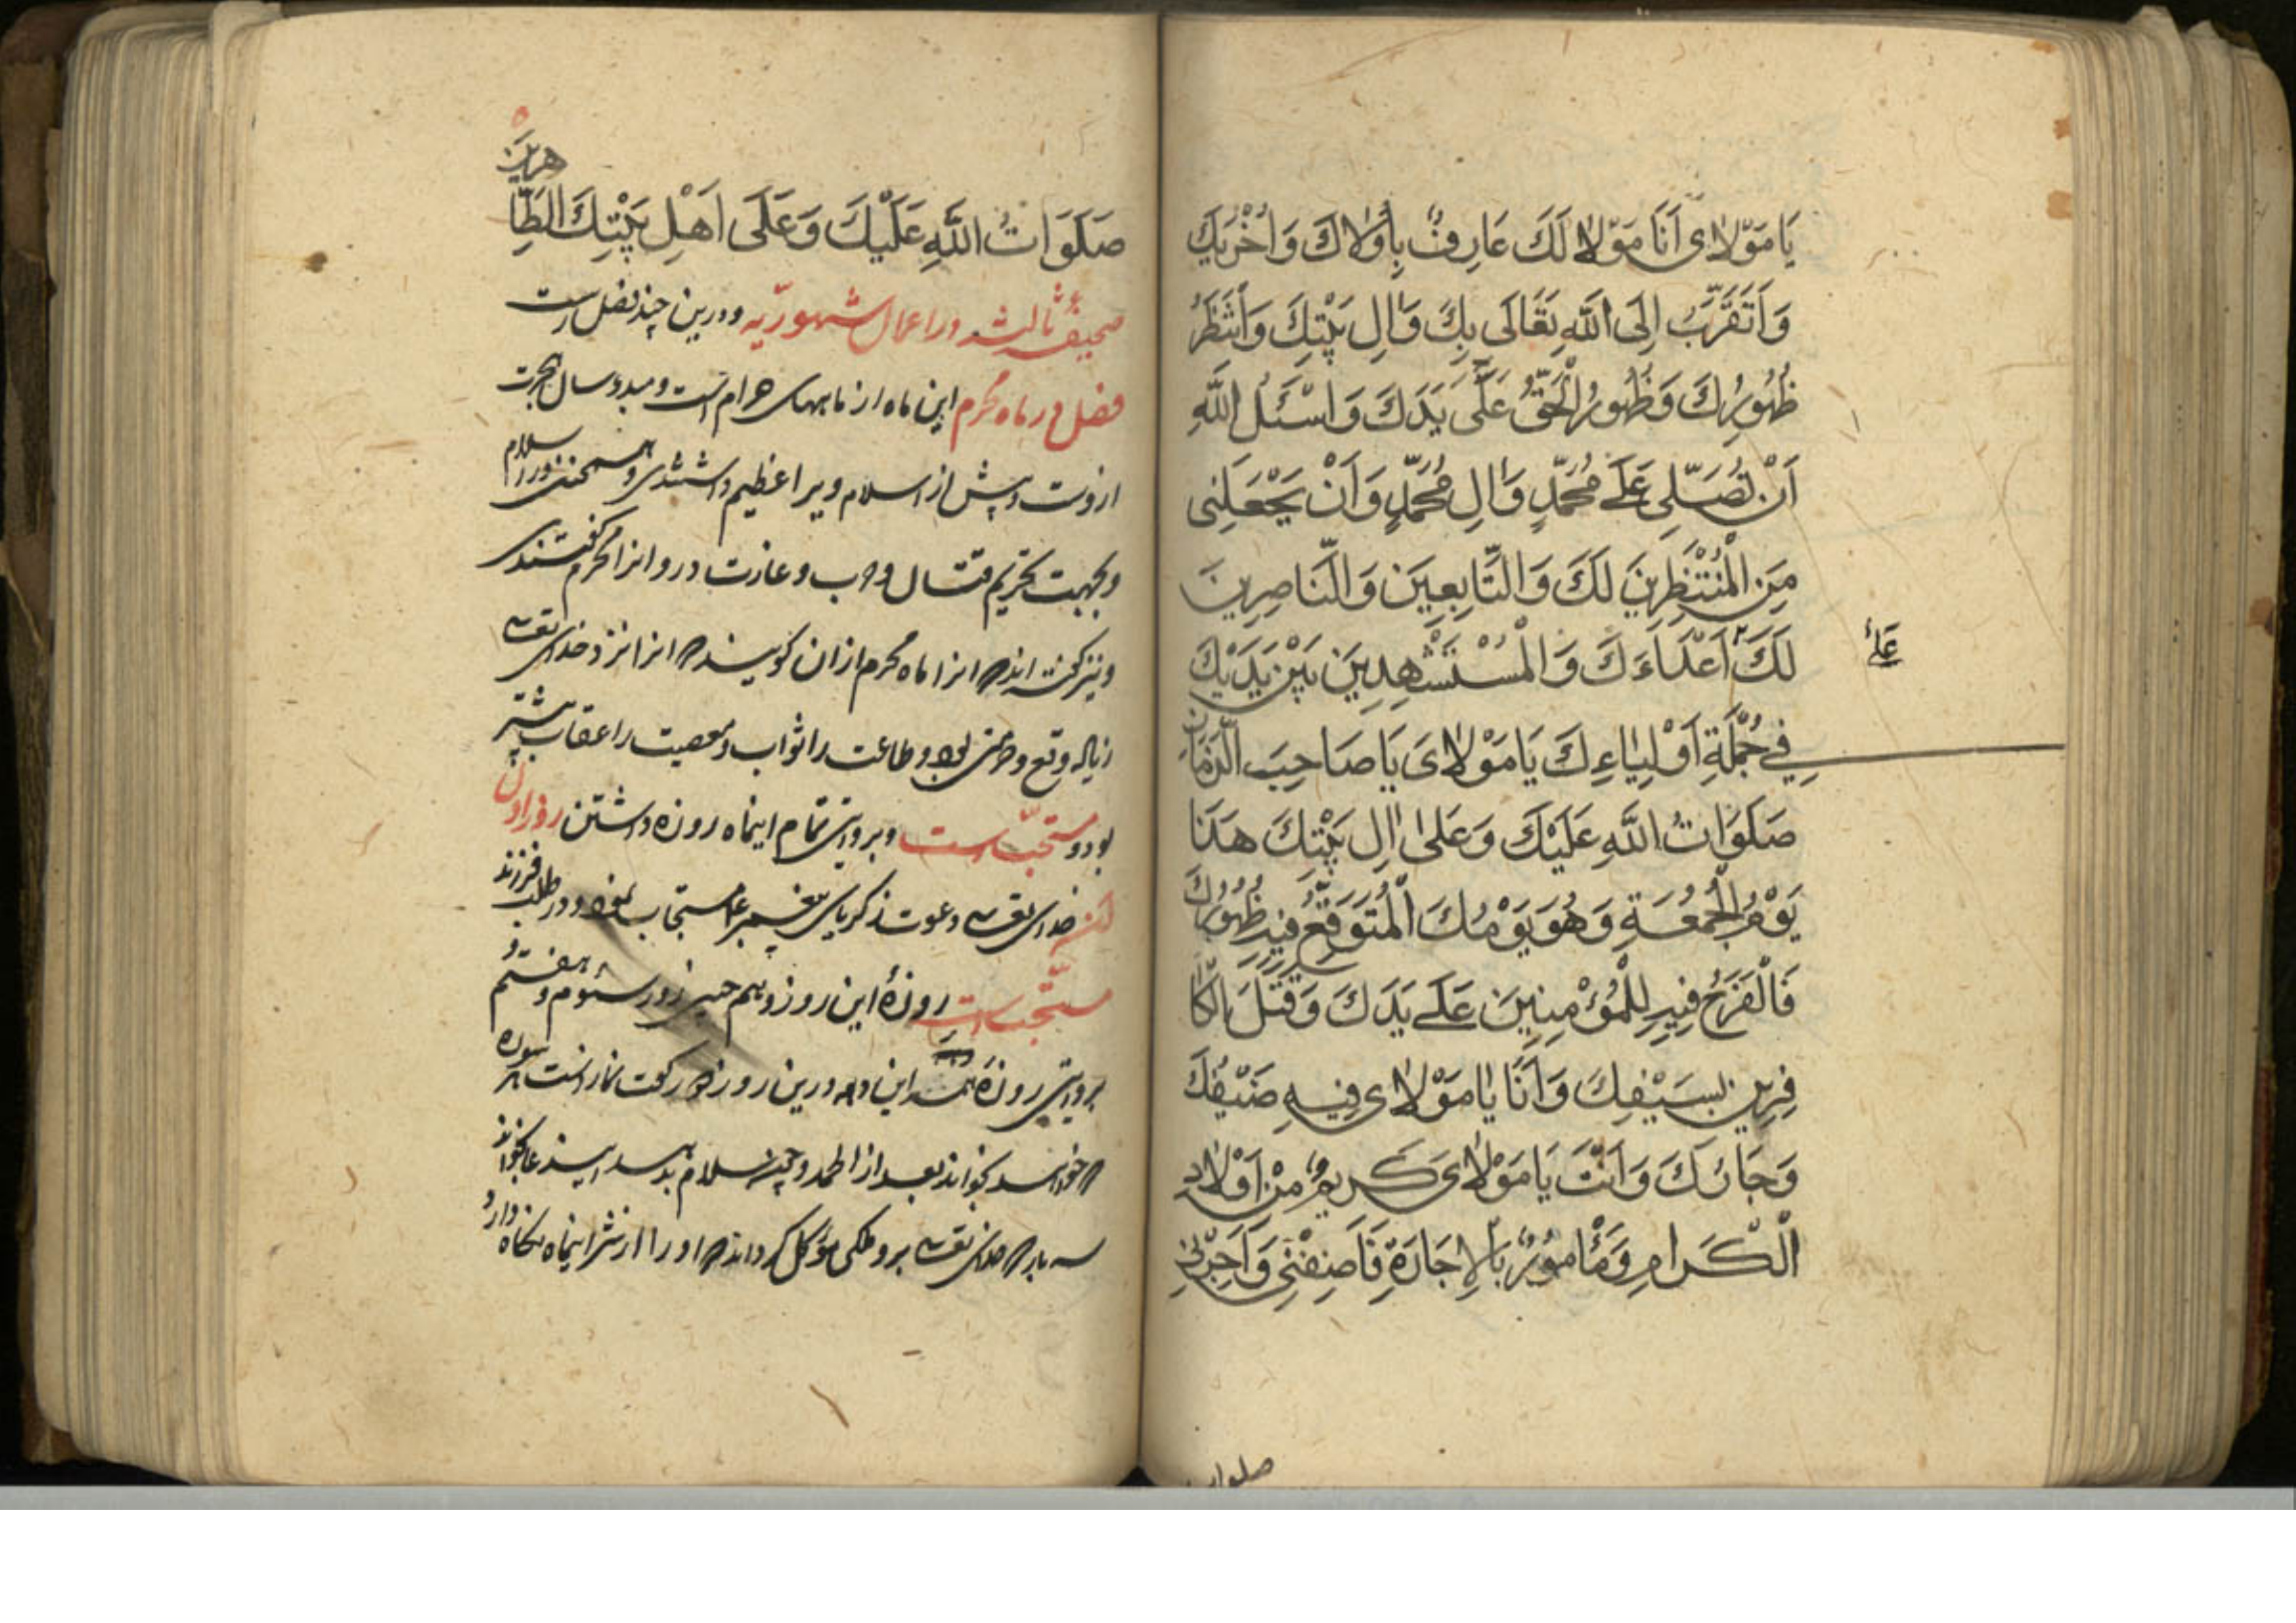 يَا مَوْلاىَ اَنَا مَوْلاً لَكَ عَارِفٌ بِاُولاكَ وَاُخْرَيكَ
وَاَتَقَرَّبُ اِلَى اللَّهِ تَعَالَى بِكَ وَالِ بَيْتِكَ وَاَنْتَظِرُ
ظُهُورَكَ وَظُهُورَ الْحَقِّ عَلَى يَدَكَ وَاسْئَلُ اللَّهَ
اَنْ تُصَلِّىَ عَلَى مُحَمَّدٍ وَالِ مُحَمَّدٍ وَاَنْ يَجْعَلَنِى
مِنَ الْمُنْتَظِرِينَ لَكَ وَالتَّابِعِينَ وَالنَّاصِرِينَ
لَكَ اَعْدَاءَكَ وَالْمُسْتَشْهِدِينَ بَيْنَ يَدَيْكَ
عَلَى
فِي جُمْلَةِ اَوْلِيَاءِكَ يَا مَوْلاىَ يَا صَاحِبَ الزَّمَانِ
صَلَوَاتُ اللَّهِ عَلَيْكَ وَعَلَى الِ بَيْتِكَ هَذَا
يَوْمُ الْجُمُعَةِ وَهُوَ يَوْمُكَ الْمُتَوَقَّعُ فِيهِ ظُهُورُكَ
فَالْفَرَجُ فِيهِ لِلْمُؤْمِنِينَ عَلَى يَدَكَ وَقَتْلَ الْكَا
فِرِينَ بِسَيْفِكَ وَاَنَا يَا مَوْلاىَ فِيهِ ضَيْفُكَ
وَجَارُكَ وَاَنْتَ يَا مَوْلاىَ كَرِيمٌ مِنْ اَوْلادِ
الْكَرَامِ وَمَأْمُورٌ بِالاِجَارَةِ فَاَضِفْنِى وَاَجِرْنِى
صلوات
صَلَوَاتُ اللَّهِ عَلَيْكَ وَعَلَى اَهْلِ بَيْتِكَ الطَّا هرين
صحيفۀ ثالثه در اعمال شهوريّه و درين چند فصل است
فصل در ماه محرم اين ماه از ماههاى حرام است و مبدء سال هجرت
ازوست و پيش از اسلام ويرا عظيم داشتندى و همچنين در اسلام
و بجهت تحريم قتال و حرب و غارت در و انرا محرم گفتندى
و نيز گفته اند كه انرا ماه محرم ازان گويند كه انرا نزد خداى تعالى
زياده وقع و حرمتى بود و طاعت را ثواب و معصيت را عقاب بيشتر
بود و مستحبّ است و بروايتى تمام اينماه روزه داشتن روز اول
خداى تعالى دعوت زكرياى پيغمبر ع مستجاب نمود و در طلب فرزند
مستحبّ است روزۀ اين روز و همچنين روز سيوم و هفتم
بروايتى روزۀ اين دهه و درين روز دو ركعت نماز است هر سوره
كه خواهد بخواند بعد از الحمد و چون سلام بدهد اين دعا بخواند
سه بار كه خداى تعالى برو ملكى موكل گرداند كه او را از شر اينماه نگاه دارد